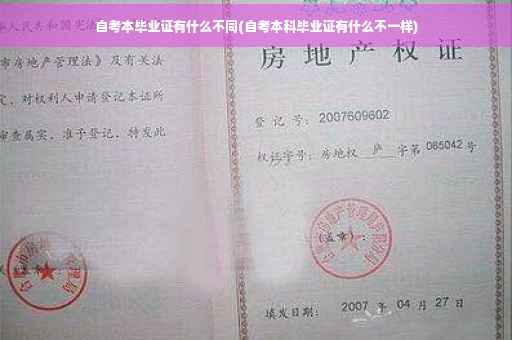 自考本毕业证有什么不同(自考本科毕业证有什么不一样)
人民共和国宪法
市房地产管理法》及有关法
定，对权利人申请登记本证所
审查属实，准予登记，特发此
房地产权证
登记号：2007609602
权证字号：房地权 庐 字第 085042 号
(盖章)：
填发日期：2007 年 04 月 27 日